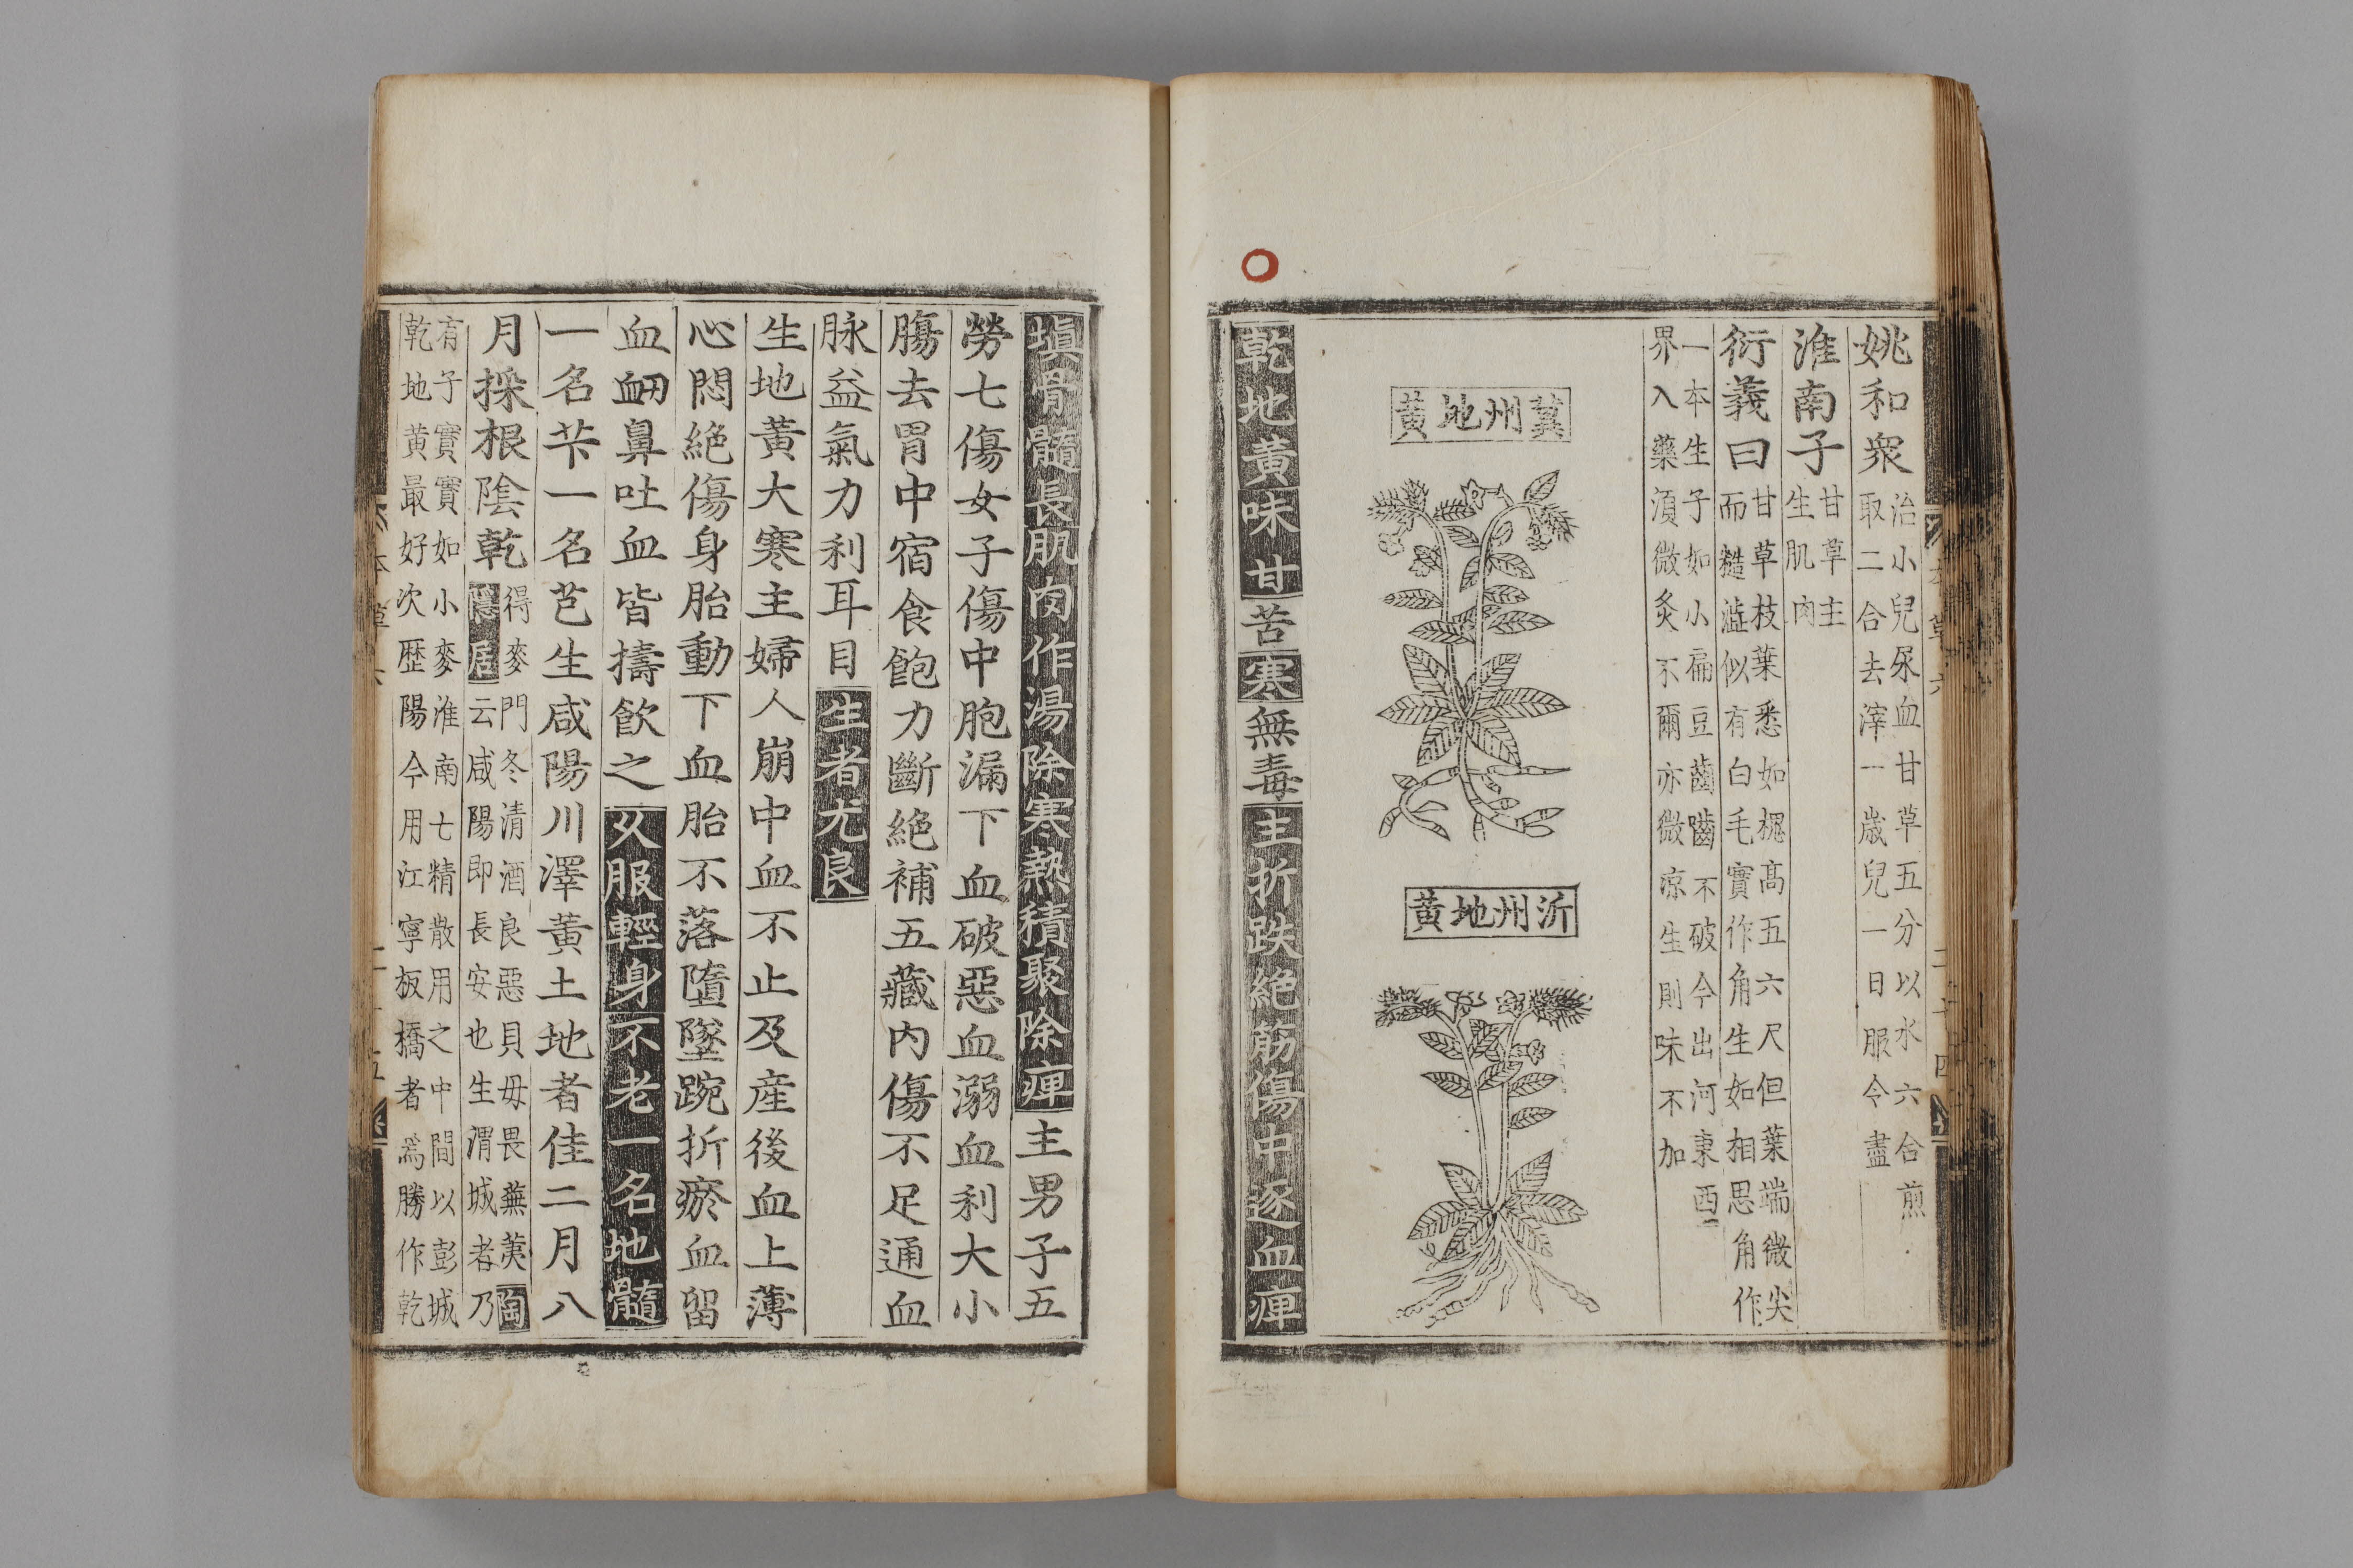 姚和衆治小兒尿血甘草五分以水六合煎
取二合去滓一歲兒一日服令盡
淮南子甘草主
生肌肉
衍義曰甘草枝葉悉如槐髙五六尺但葉端微尖
而糙澁似有白毛實作角生如相思角作
一本生子如小扁豆齒嚙不破今出河東西
界入藥湏微炙不爾亦微凉生則味不加
冀州地黄
沂州地黄
乾地黄味甘苦寒無毒主折跌絕筋傷中逐血痺
塡骨髓長肌肉作湯除寒熱積聚除痺主男子五
勞七傷女子傷中胞漏下血破惡血溺血利大小
腸去胃中宿食飽力斷絕補五藏内傷不足通血
脉益氣力利耳目生者尤良
生地黄大寒主婦人崩中血不止及産後血上薄
心悶絕傷身胎動下血胎不落墮墜踠折瘀血留
血衂鼻吐血皆擣飲之久服輕身不老一名地髓
一名芐一名芑生咸陽川澤黄土地者佳二月八
月採根陰乾得麥門冬清酒良惡貝母畏蕪荑陶
隱居云咸陽即長安也生渭城者乃
有子實實如小麥淮南七精散用之中間以彭城
乾地黄最好次歷陽今用江寧板橋者爲勝作乾